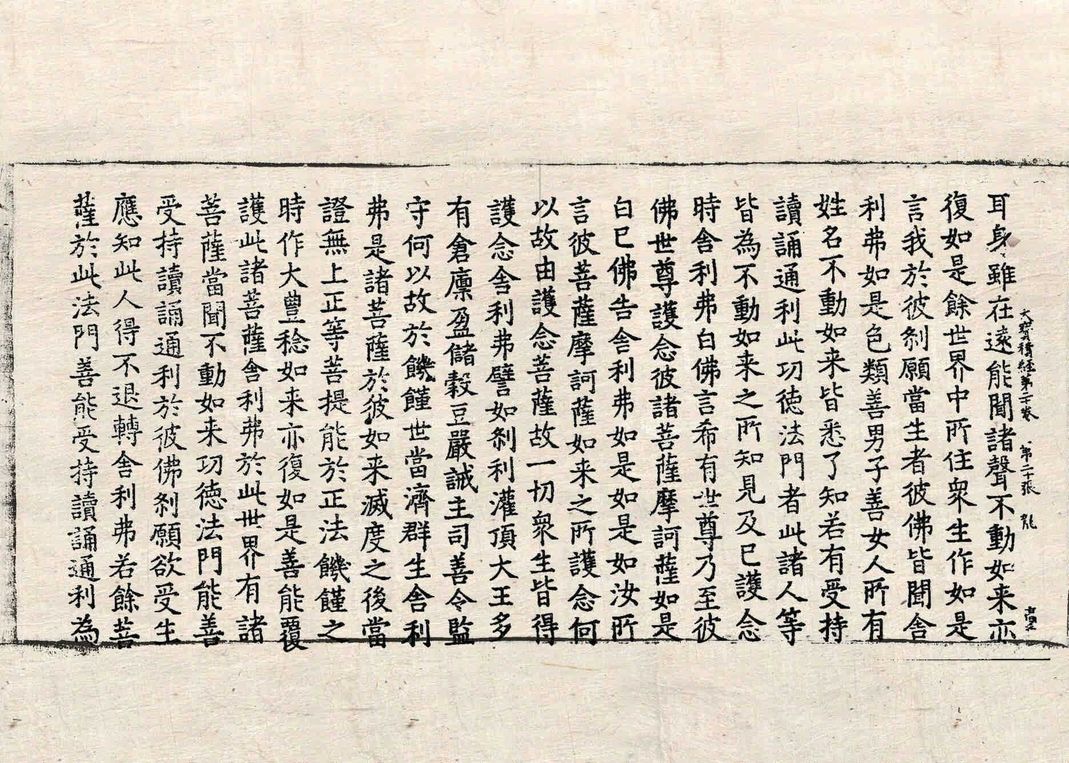 耳身雖在遠能聞諸聲不動如来亦
大寳積経第二十卷 第二十張 乃
復如是餘世界中所住衆生作如是
言我於彼刹願當生者彼佛皆聞舎
利弗如是色類善男子善女人所有
姓名不動如来皆悉了知若有受持
讀誦通利此功徳法門者此諸人等
皆為不動如来之所知見及已護念
時舎利弗白佛言希有世尊乃至彼
佛世尊護念彼諸菩薩摩訶薩如是
白已佛告舎利弗如是如是如汝所
言彼菩薩摩訶薩如来之所護念何
以故由護念菩薩故一切衆生皆得
護念舎利弗譬如刹利灌頂大王多
有倉廪盈儲糓豆嚴誡主司善令監
守何以故於饑饉世當濟群生舎利
弗是諸菩薩於彼如来滅度之後當
證無上正等菩提能於正法饑饉之
時作大豊稔如来亦復如是善能覆
護此諸菩薩舎利弗於此世界有諸
菩薩當聞不動如来功徳法門能善
受持讀誦通利於彼佛刹願欲受生
應知此人得不退轉舎利弗若餘菩
薩於此法門善能受持讀誦通利為